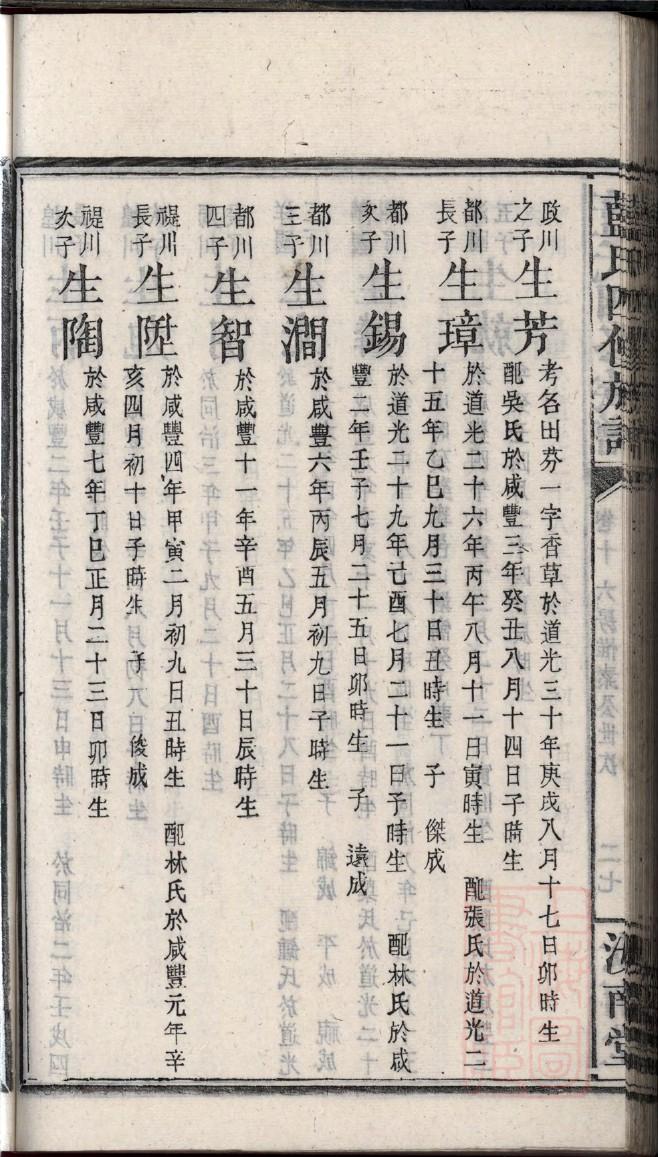 藍氏四修族譜
卷十六易
世次
二七
汝南堂
政川
之子
生芳
考名田芬一字香草於道光三十年庚戌八月十七日卯時生
配吳氏於咸豐三年癸丑八月十四日子時生
都川
長子
生璋
於道光二十六年丙午八月十一日寅時生　配張氏於道光二
十五年乙巳九月三十日丑時生　子　傑成
都川
次子
生錫
於道光二十九年己酉七月二十一日子時生　配林氏於咸
豐二年壬子七月二十五日卯時生　子　遠成
都川
三子
生澗
於咸豐六年丙辰五月初九日子時生
都川
四子
生智
於咸豐十一年辛酉五月三十日辰時生
禔川
長子
生陞
於咸豐四年甲寅二月初九日丑時生　配林氏於咸豐元年辛
亥四月初十日子時生　子　俊成
禔川
次子
生陶
於咸豐七年丁巳正月二十三日卯時生